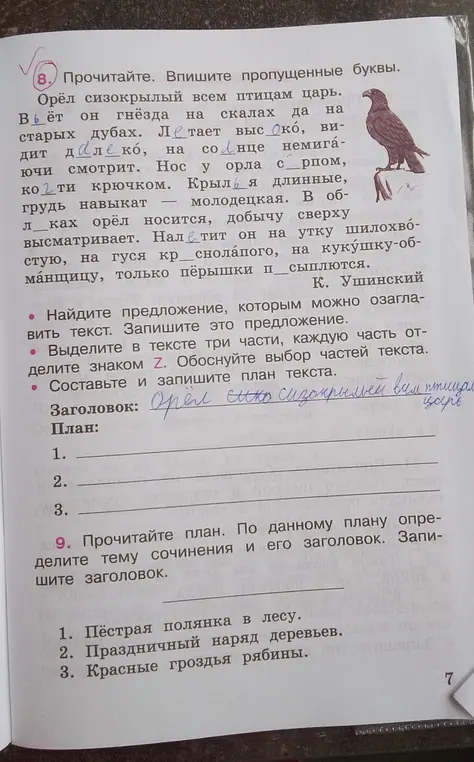 8. Прочитайте. Впишите пропущенные буквы.
Орёл сизокрылый всем птицам царь.
Вьёт он гнёзда на скалах да на
старых дубах. Летает высоко́, ви-
дит далеко́, на солнце немига́-
ючи смотрит. Нос у орла с_рпом,
когти крючком. Крылья длинные,
грудь навыкат — молодецкая. В об-
л_ках орёл носится, добычу сверху
высматривает. Налетит он на утку шилохво́-
стую, на гуся кр_снола́пого, на куку́шку-об-
ма́нщицу, только пёрышки п_сыплются.
К. Ушинский
• Найдите предложение, которым можно озагла-
вить текст. Запишите это предложение.
• Выделите в тексте три части, каждую часть от-
делите знаком Z. Обоснуйте выбор частей текста.
• Составьте и запишите план текста.
Заголовок: Орёл сизокрылый всем птицам
царь
План:
1.
2.
3.
9. Прочитайте план. По данному плану опре-
делите тему сочинения и его заголовок. Запи-
шите заголовок.
1. Пёстрая полянка в лесу.
2. Праздничный наряд деревьев.
3. Красные гроздья рябины.
7